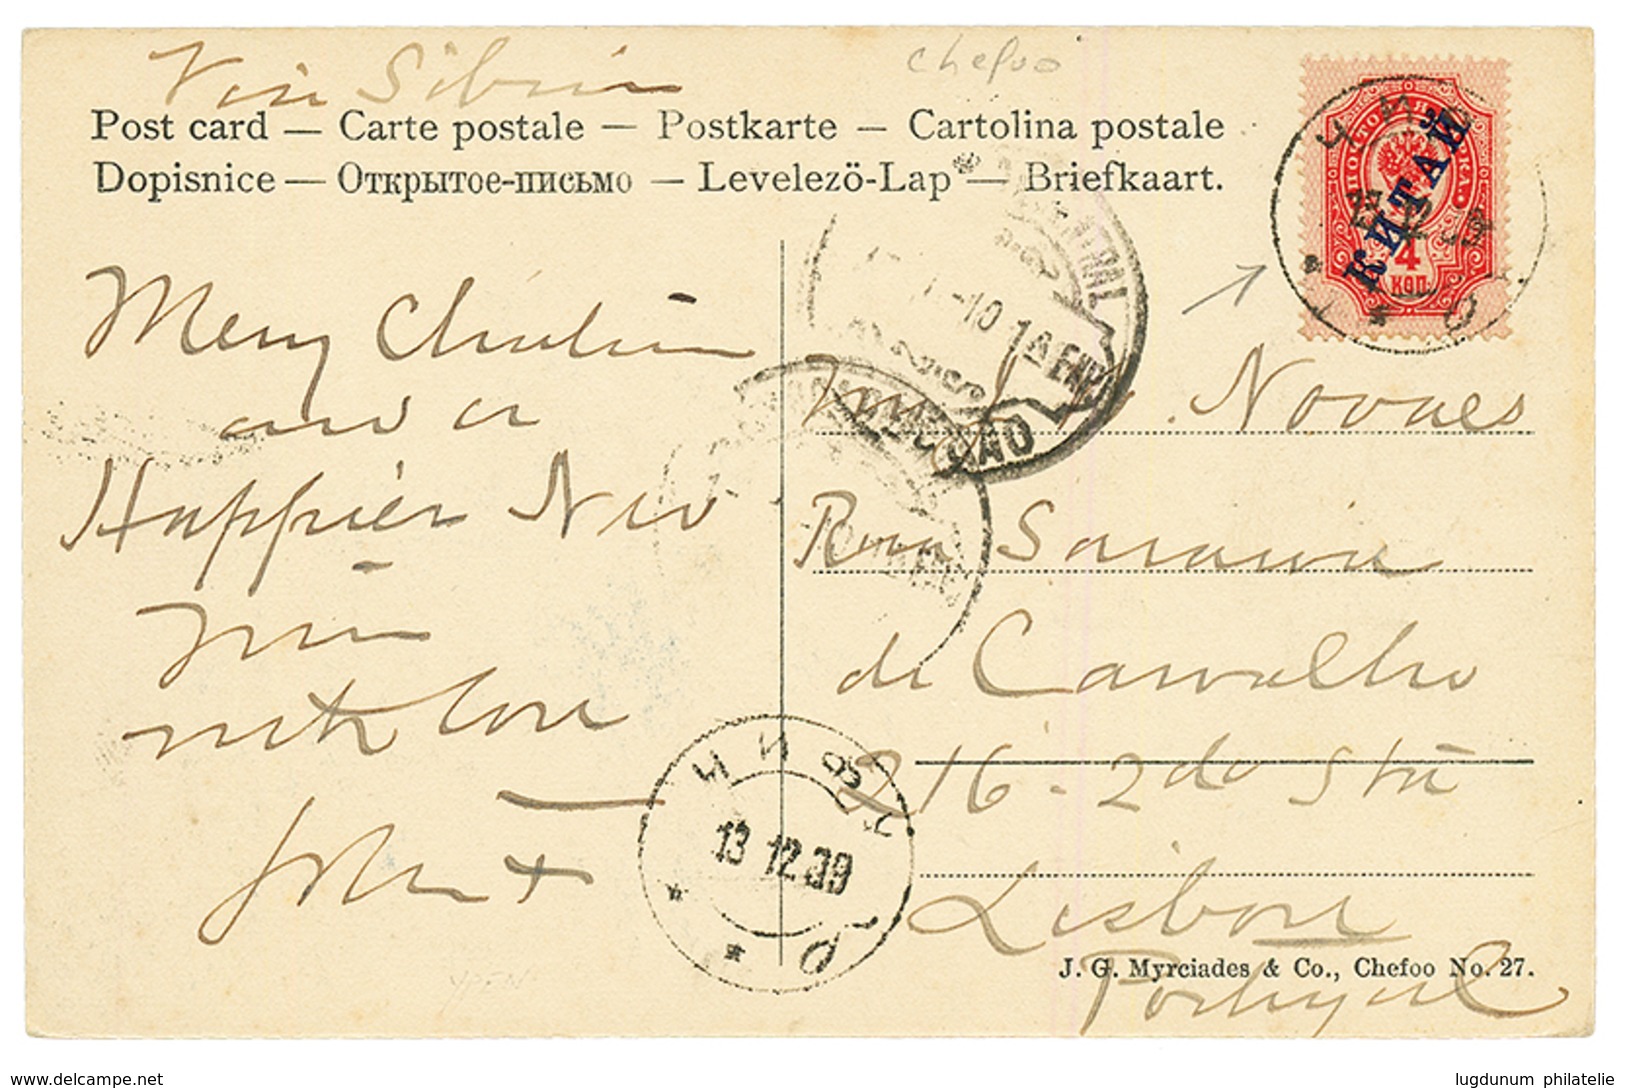 Via Siberia
Chefoo
Post card — Carte postale — Postkarte — Cartolina postale
Dopisnice — Открытое-письмо — Levelező-Lap — Briefkaart.
КИТАЙ
4
КОП.
CENTRAL
1-10 1A
Merry Christmas
and a
Happier New
Year
with love
John
Novaes
Rua Saraiva
de Carvalho
216 - 2do
Lisbon
Portugal
ЧИФУ
13 12 09
J. G. Myrciades & Co., Chefoo No. 27.
YPEN
delcampe.net
lugdunum philatelie